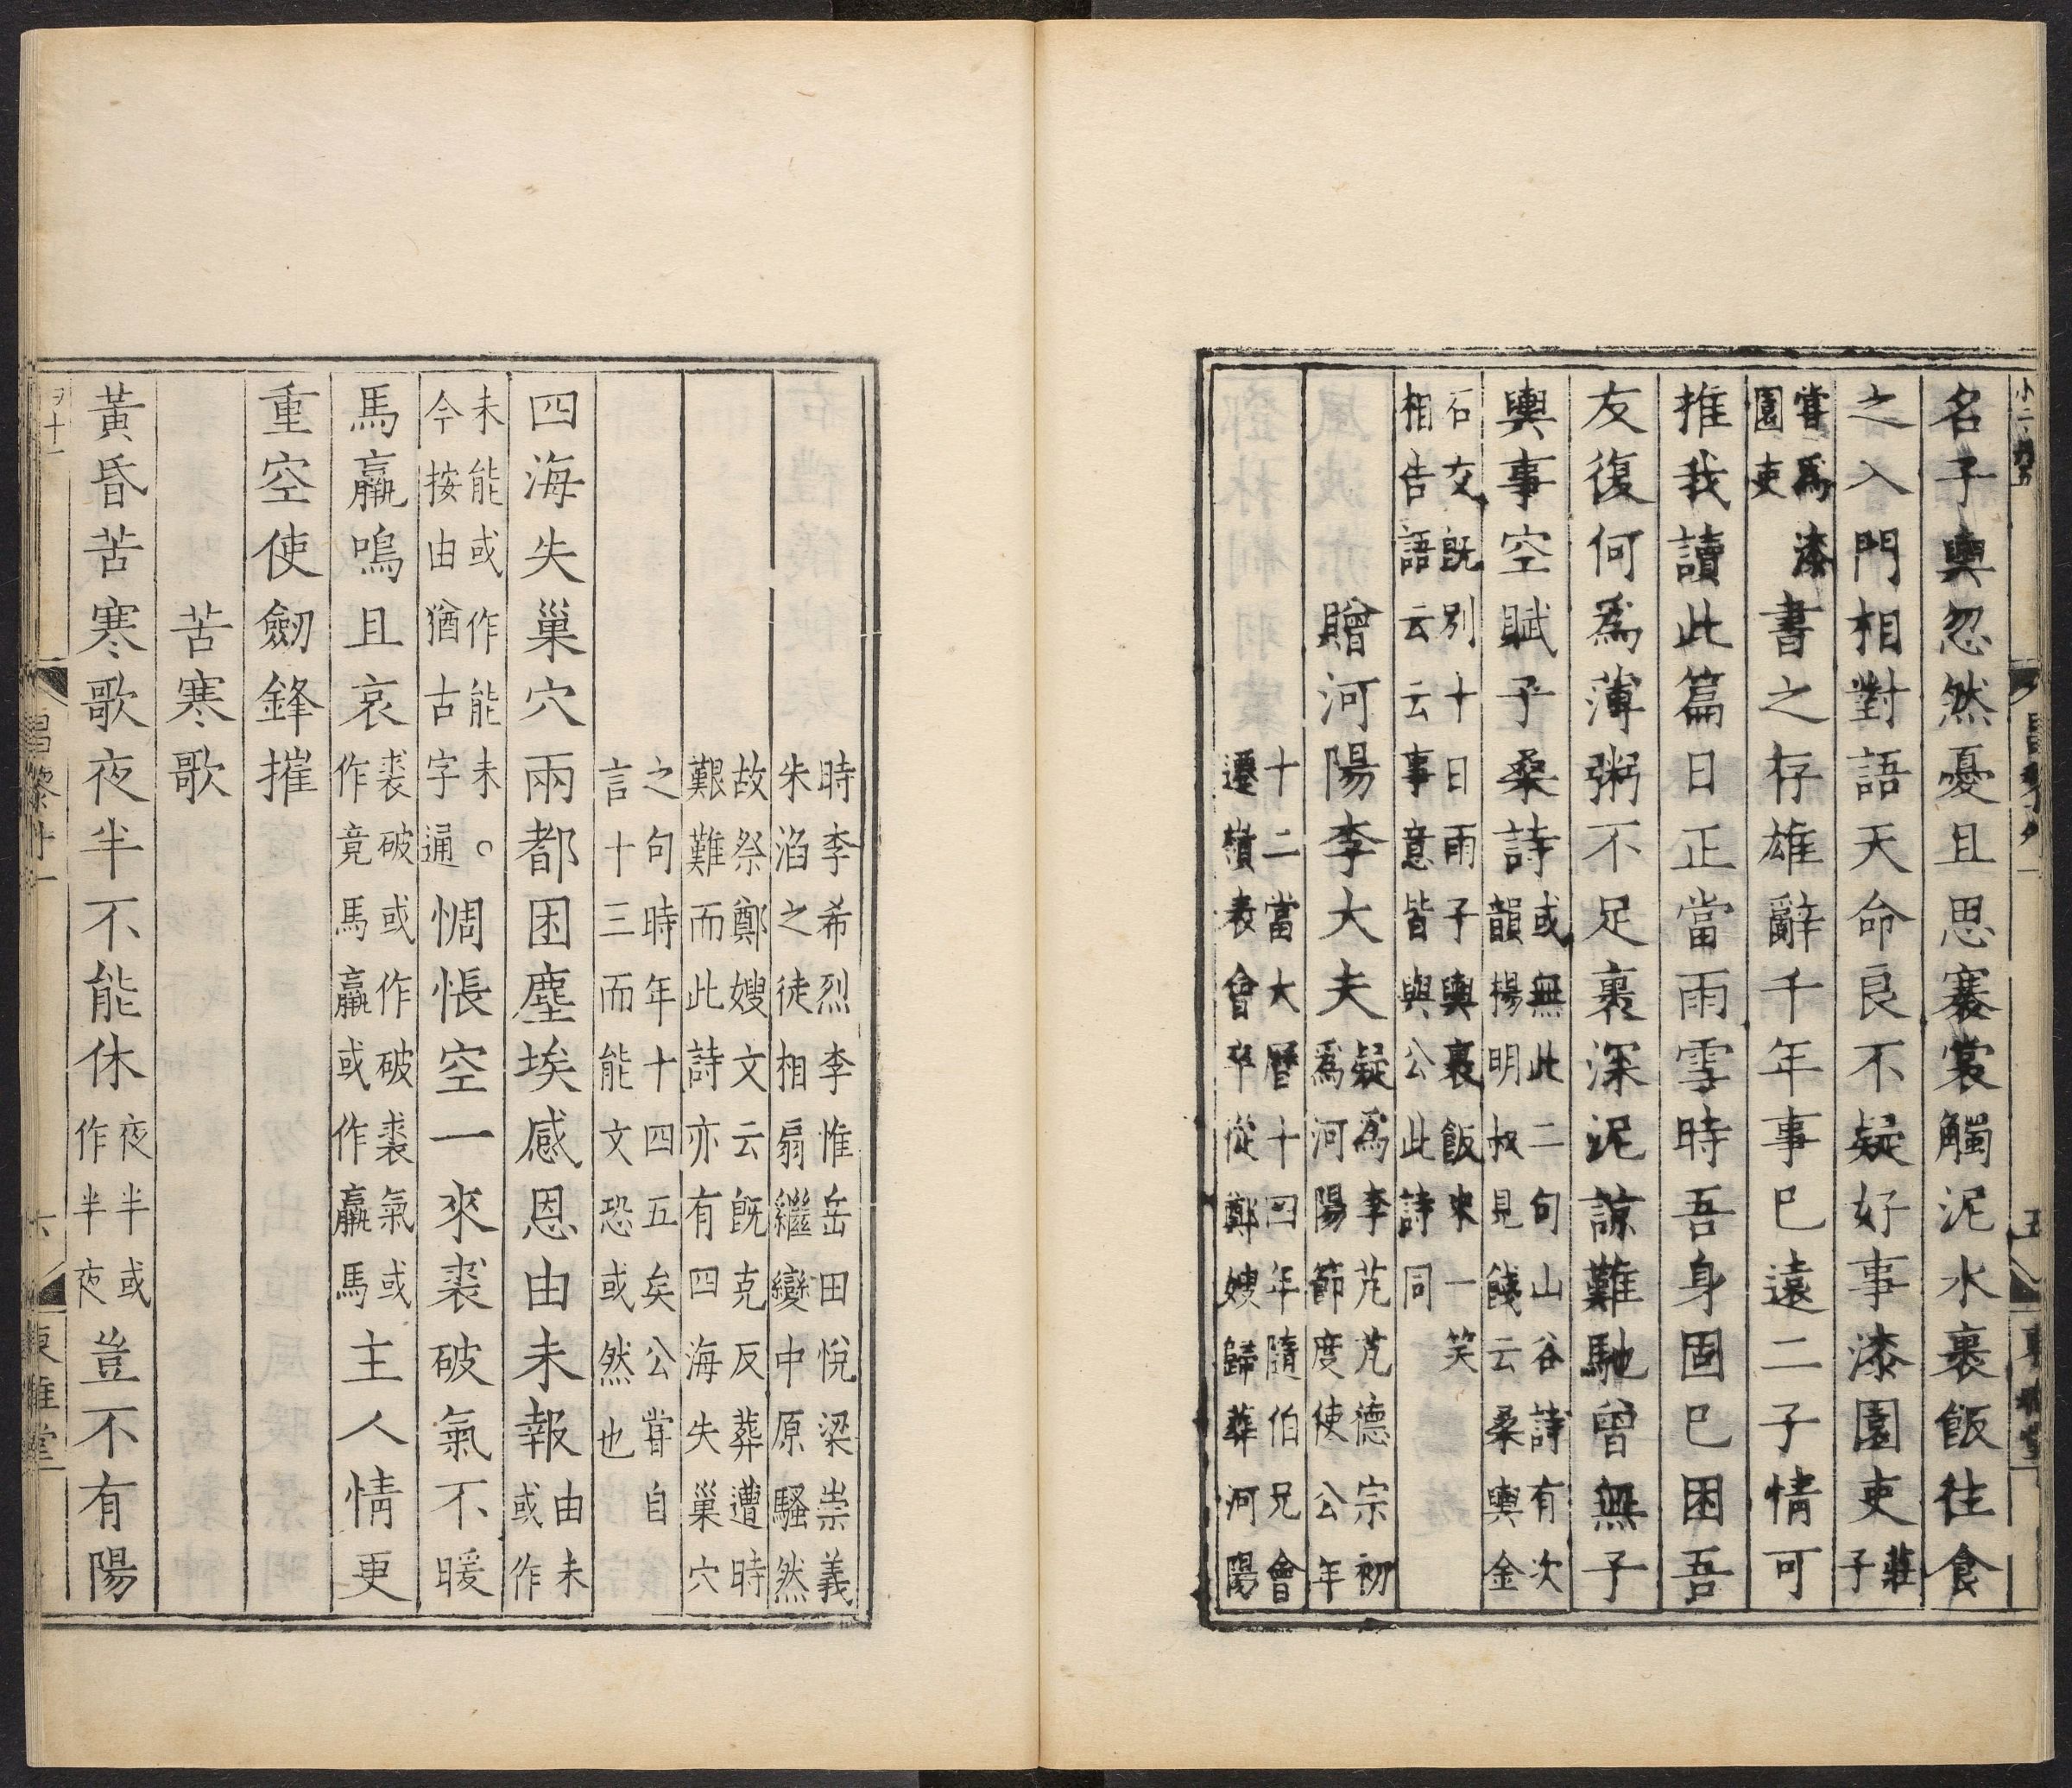 名子輿忽然憂且思褰裳觸泥水裹飯往食
之入門相對語天命良不疑好事漆園吏莊子
嘗爲漆園吏書之存雄辭千年事已遠二子情可
推我讀此篇日正當雨雪時吾身固已困吾
友復何爲薄粥不足裹深泥諒難馳曾無子
輿事空賦子桑詩或無此二句山谷詩有次韻楊明叔見餞云桑輿金
石交既別十日雨子輿裹飯來一笑相告語云云事意皆與公此詩同
贈河陽李大夫疑爲李芃芃德宗初爲河陽節度使公年
十二當大曆十四年隨伯兄會遷嶺表會卒從鄭嫂歸葬河陽
時李希烈李惟岳田悅梁崇義朱滔之徒相扇繼變中原騷然
故祭鄭嫂文云既克反葬遭時艱難而此詩亦有四海失巢穴
之句時年十四五矣公嘗自言十三而能文恐或然也
四海失巢穴兩都困塵埃感恩由未報由未或作
未能或作能未○今按由猶古字通惆悵空一來裘破氣不暖
馬羸鳴且哀裘破或作破裘氣或作竟馬羸或作羸馬主人情更
重空使劒鋒摧
苦寒歌
黃昏苦寒歌夜半不能休夜半或作半夜豈不有陽
昌黎外一
六
東雅堂
五